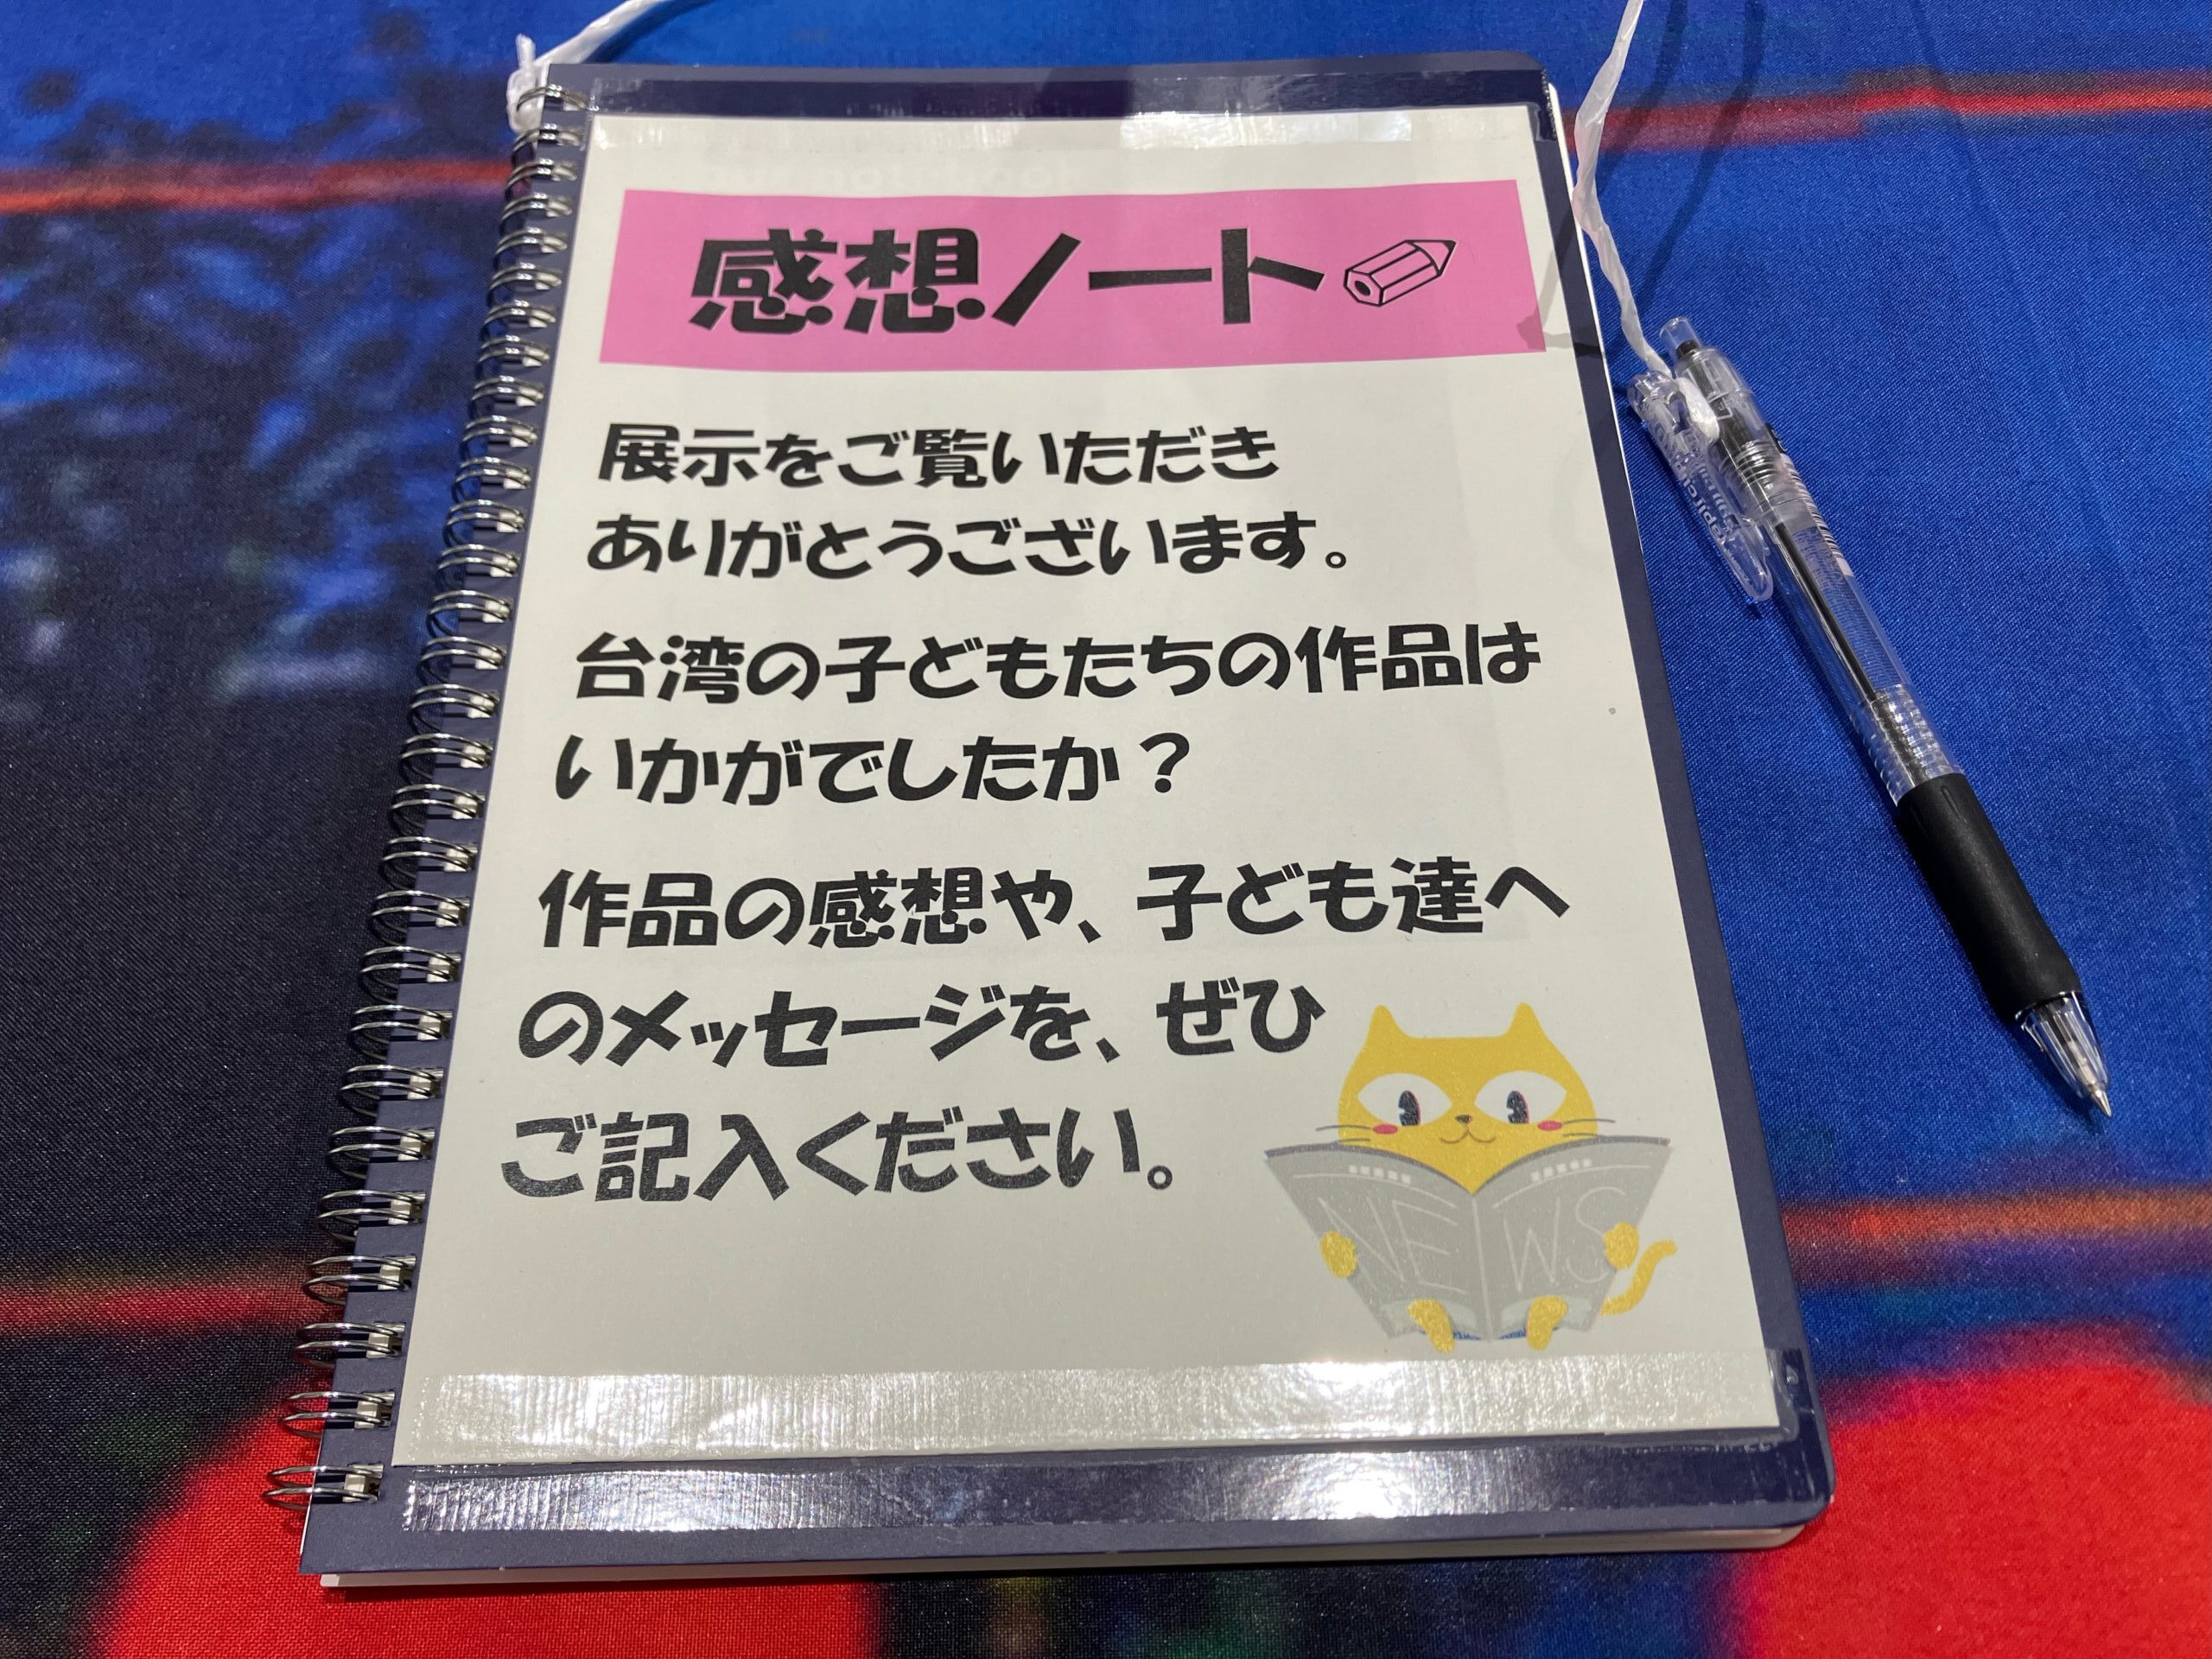 感想ノート
展示をご覧いただき
ありがとうございます。
台湾の子どもたちの作品は
いかがでしたか？
作品の感想や、子ども達へ
のメッセージを、ぜひ
ご記入ください。
NEWS